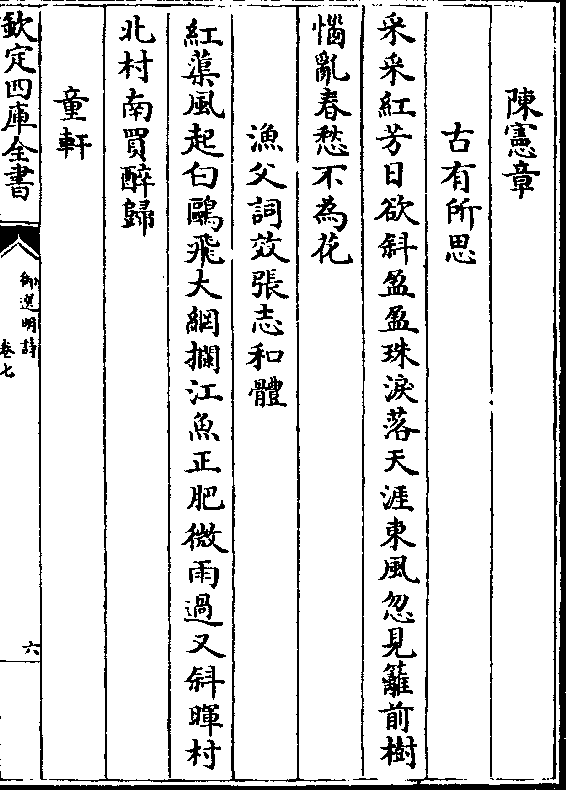 陳憲章
古有所思
采采紅芳日欲斜盈盈珠淚落天涯東風忽見籬前樹
惱亂春愁不為花
漁父詞效張志和體
紅蕖風起白鷗飛大網攔江魚正肥微雨過又斜暉村
北村南買醉歸
童軒
欽定四庫全書
御選明詩
卷七
六